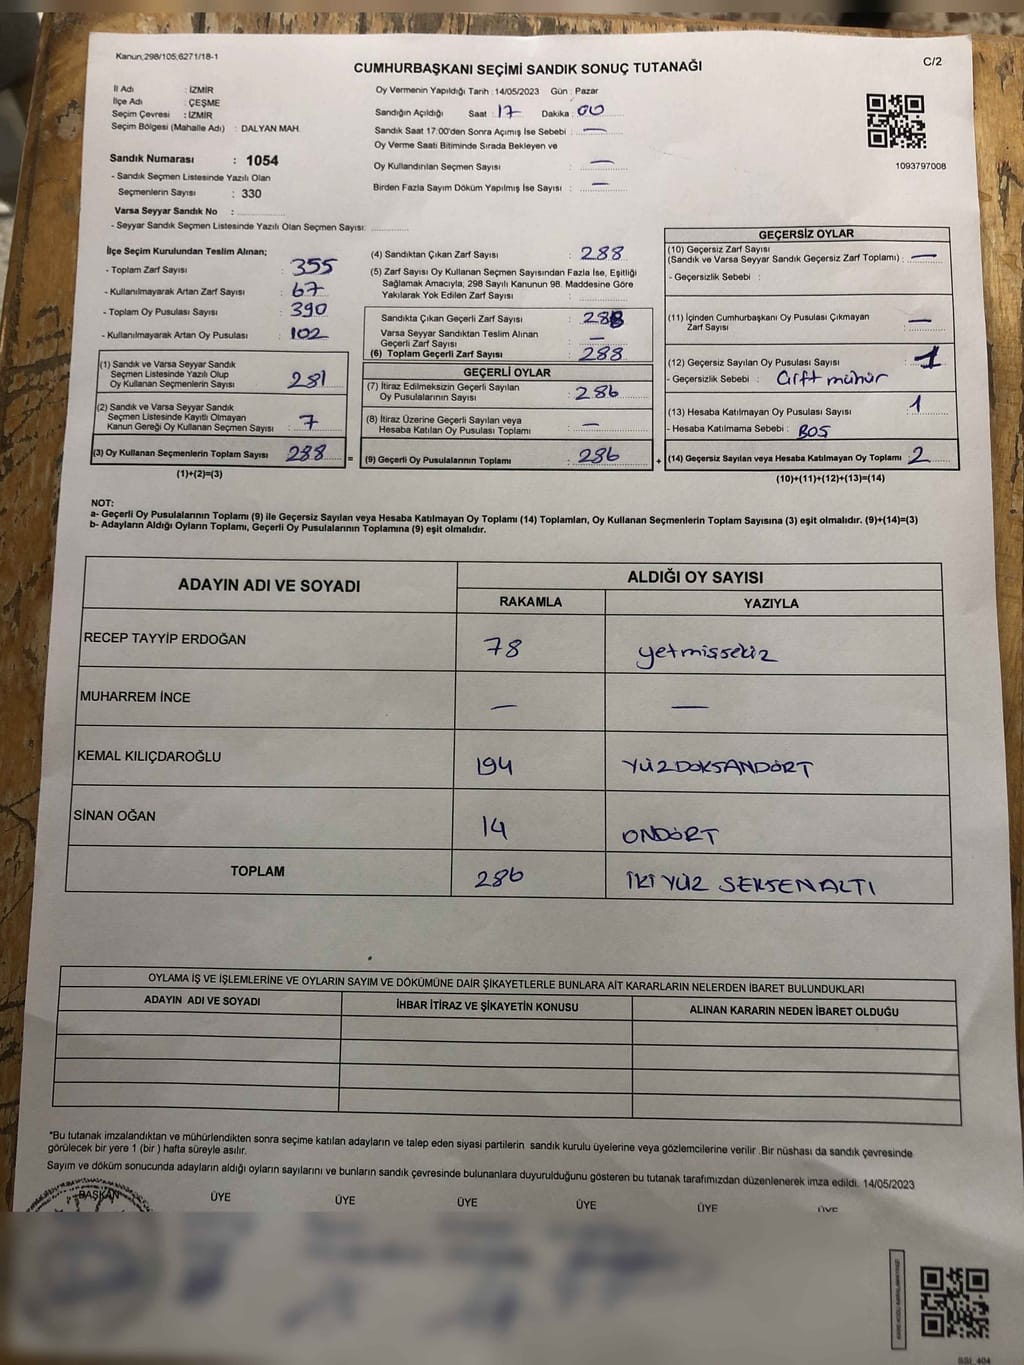 Kanun;298/105,6271/18-1
C/2
CUMHURBAŞKANI SEÇİMİ SANDIK SONUÇ TUTANAĞI
İl Adı : İZMİR
İlçe Adı : ÇEŞME
Seçim Çevresi : İZMİR
Seçim Bölgesi (Mahalle Adı) : DALYAN MAH.
Sandık Numarası : 1054
- Sandık Seçmen Listesinde Yazılı Olan
Seçmenlerin Sayısı : 330
Varsa Seyyar Sandık No :
- Seyyar Sandık Seçmen Listesinde Yazılı Olan Seçmen Sayısı:
Oy Vermenin Yapıldığı Tarih : 14/05/2023 Gün : Pazar
Sandığın Açıldığı Saat : 17 Dakika : 00
Sandık Saat 17:00'den Sonra Açımış İse Sebebi : —
Oy Verme Saati Bitiminde Sırada Bekleyen ve
Oy Kullandırılan Seçmen Sayısı : —
Birden Fazla Sayım Döküm Yapılmış İse Sayısı : —
1093797008
İlçe Seçim Kurulundan Teslim Alınan;
- Toplam Zarf Sayısı : 355
- Kullanılmayarak Artan Zarf Sayısı : 67
- Toplam Oy Pusulası Sayısı : 390
- Kullanılmayarak Artan Oy Pusulası : 102
(1) Sandık ve Varsa Seyyar Sandık
Seçmen Listesinde Yazılı Olup
Oy Kullanan Seçmenlerin Sayısı : 281
(2) Sandık ve Varsa Seyyar Sandık
Seçmen Listesinde Kayıtlı Olmayan
Kanun Gereği Oy Kullanan Seçmen Sayısı : 7
(3) Oy Kullanan Seçmenlerin Toplam Sayısı : 288 =
(1)+(2)=(3)
(4) Sandıktan Çıkan Zarf Sayısı : 288
(5) Zarf Sayısı Oy Kullanan Seçmen Sayısından Fazla İse, Eşitliği
Sağlamak Amacıyla, 298 Sayılı Kanunun 98. Maddesine Göre
Yakılarak Yok Edilen Zarf Sayısı :
Sandıkta Çıkan Geçerli Zarf Sayısı : 288
Varsa Seyyar Sandıktan Teslim Alınan
Geçerli Zarf Sayısı : —
(6) Toplam Geçerli Zarf Sayısı : 288
GEÇERLİ OYLAR
(7) İtiraz Edilmeksizin Geçerli Sayılan
Oy Pusulalarının Sayısı : 286
(8) İtiraz Üzerine Geçerli Sayılan veya
Hesaba Katılan Oy Pusulası Toplamı : —
(9) Geçerli Oy Pusulalarının Toplamı : 286 +
GEÇERSİZ OYLAR
(10) Geçersiz Zarf Sayısı
(Sandık ve Varsa Seyyar Sandık Geçersiz Zarf Toplamı) : —
- Geçersizlik Sebebi :
(11) İçinden Cumhurbaşkanı Oy Pusulası Çıkmayan
Zarf Sayısı : —
(12) Geçersiz Sayılan Oy Pusulası Sayısı : 1
- Geçersizlik Sebebi : Çift mühür
(13) Hesaba Katılmayan Oy Pusulası Sayısı : 1
- Hesaba Katılmama Sebebi : BOŞ
(14) Geçersiz Sayılan veya Hesaba Katılmayan Oy Toplamı : 2
(10)+(11)+(12)+(13)=(14)
NOT:
a- Geçerli Oy Pusulalarının Toplamı (9) ile Geçersiz Sayılan veya Hesaba Katılmayan Oy Toplamı (14) Toplamları, Oy Kullanan Seçmenlerin Toplam Sayısına (3) eşit olmalıdır. (9)+(14)=(3)
b- Adayların Aldığı Oyların Toplamı, Geçerli Oy Pusulalarının Toplamına (9) eşit olmalıdır.
ADAYIN ADI VE SOYADI
ALDIĞI OY SAYISI
RAKAMLA YAZIYLA
RECEP TAYYİP ERDOĞAN 78 yetmişsekiz
MUHARREM İNCE — —
KEMAL KILIÇDAROĞLU 194 YÜZDOKSANDÖRT
SİNAN OĞAN 14 ONDÖRT
TOPLAM 286 İKİ YÜZ SEKSENALTI
OYLAMA İŞ VE İŞLEMLERİNE VE OYLARIN SAYIM VE DÖKÜMÜNE DAİR ŞİKAYETLERLE BUNLARA AİT KARARLARIN NELERDEN İBARET BULUNDUKLARI
ADAYIN ADI VE SOYADI İHBAR İTİRAZ VE ŞİKAYETİN KONUSU ALINAN KARARIN NEDEN İBARET OLDUĞU
*Bu tutanak imzalandıktan ve mühürlendikten sonra seçime katılan adayların ve talep eden siyasi partilerin sandık kurulu üyelerine veya gözlemcilerine verilir .Bir nüshası da sandık çevresinde
görülecek bir yere 1 (bir ) hafta süreyle asılır.
Sayım ve döküm sonucunda adayların aldığı oyların sayılarını ve bunların sandık çevresinde bulunanlara duyurulduğunu gösteren bu tutanak tarafımızdan düzenlenerek imza edildi. 14/05/2023
BAŞKAN ÜYE ÜYE ÜYE ÜYE ÜYE ÜYE